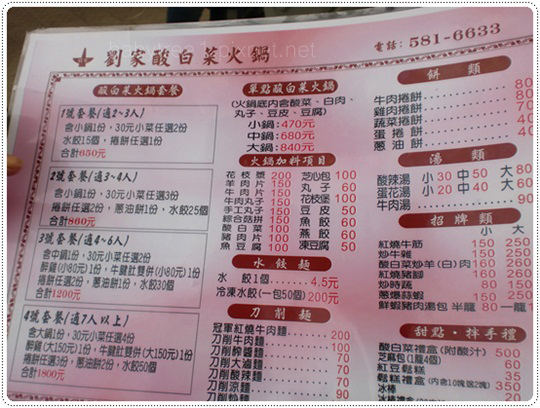 劉家酸白菜火鍋
電話: 581-6633
酸白菜火鍋套餐
1號套餐(適2~3人)
含小鍋1份，30元小菜任選2份
水餃15個，捲餅任選1份
合計650元
2號套餐(適3~4人)
含小鍋1份，30元小菜任選3份
捲餅任選2份，蔥油餅1份，水餃25個
合計860元
3號套餐(適4~6人)
含中鍋1份，30元小菜任選2份
醉雞(小80元)1份，牛腱肚雙併(小80元)1份
捲餅任選2份，蔥油餅1份，水餃30個
合計1200元
4號套餐(適7人以上)
含大鍋1份，30元小菜任選4份
醉雞(大150元)1份，牛腱肚雙併(大150元)1份
捲餅任選3份，蔥油餅2份，水餃50個
合計1800元
單點酸白菜火鍋
(火鍋底內含酸菜、白肉、
丸子、豆皮、豆腐)
小鍋:470元
中鍋:680元
大鍋:840元
火鍋加料項目
花枝漿 200 芝心包 100
羊肉片 150 丸子 60
牛肉片 150 花枝堡 100
牛肉丸子 150 豆皮 50
手工丸子 150 魚餃 60
綜合菇拼 150 燕餃 60
酸白菜 100 凍豆腐 50
豬肉片 100
魚豆腐 100
水餃麵
水餃1個 4.5元
冷凍水餃(一包50個) 200元
刀削麵
冠軍紅燒牛肉麵 200
刀削牛肉麵 100
刀削酢醬麵
刀削大滷麵
刀削酸辣麵
刀削涼麵
餅類
牛肉捲餅 80
雞肉捲餅
蔬菜捲餅
蛋捲餅
蔥油餅
湯類
酸辣湯 小30 中50 大80
蛋花湯 小20 中40 大60
牛肉湯 50
招牌類
小 大
紅燒牛筋 150 250
炒牛雜 150 250
酸白菜炒羊(白)肉 160 260
紅燒豬腳 160 260
炒時蔬 80 150
蔥爆蒜蝦 150
鮮蝦豬肉湯包 半籠 80 一籠
甜點・拌手禮
酸白菜禮盒(附酸汁) 500
芝麻包(1籠4個) 60
紅豆鬆糕 35
鬆糕禮盒(內含10塊送2塊) 350
冰棒